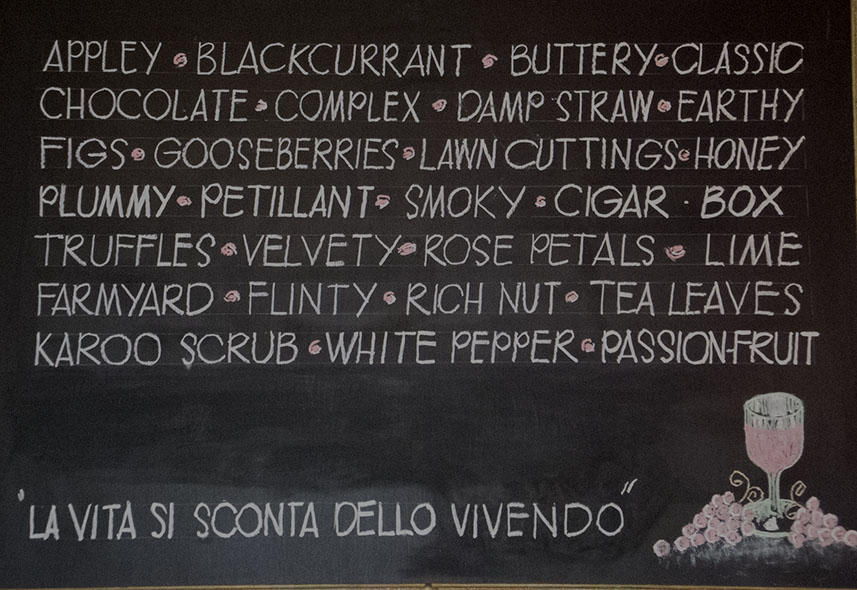 APPLEY • BLACKCURRANT • BUTTERY • CLASSIC
CHOCOLATE • COMPLEX • DAMP STRAW • EARTHY
FIGS • GOOSEBERRIES • LAWN CUTTINGS • HONEY
PLUMMY • PETILLANT • SMOKY • CIGAR · BOX
TRUFFLES • VELVETY • ROSE PETALS • LIME
FARMYARD • FLINTY • RICH NUT • TEA LEAVES
KAROO SCRUB • WHITE PEPPER • PASSION-FRUIT
'LA VITA SI SCONTA DELLO VIVENDO"